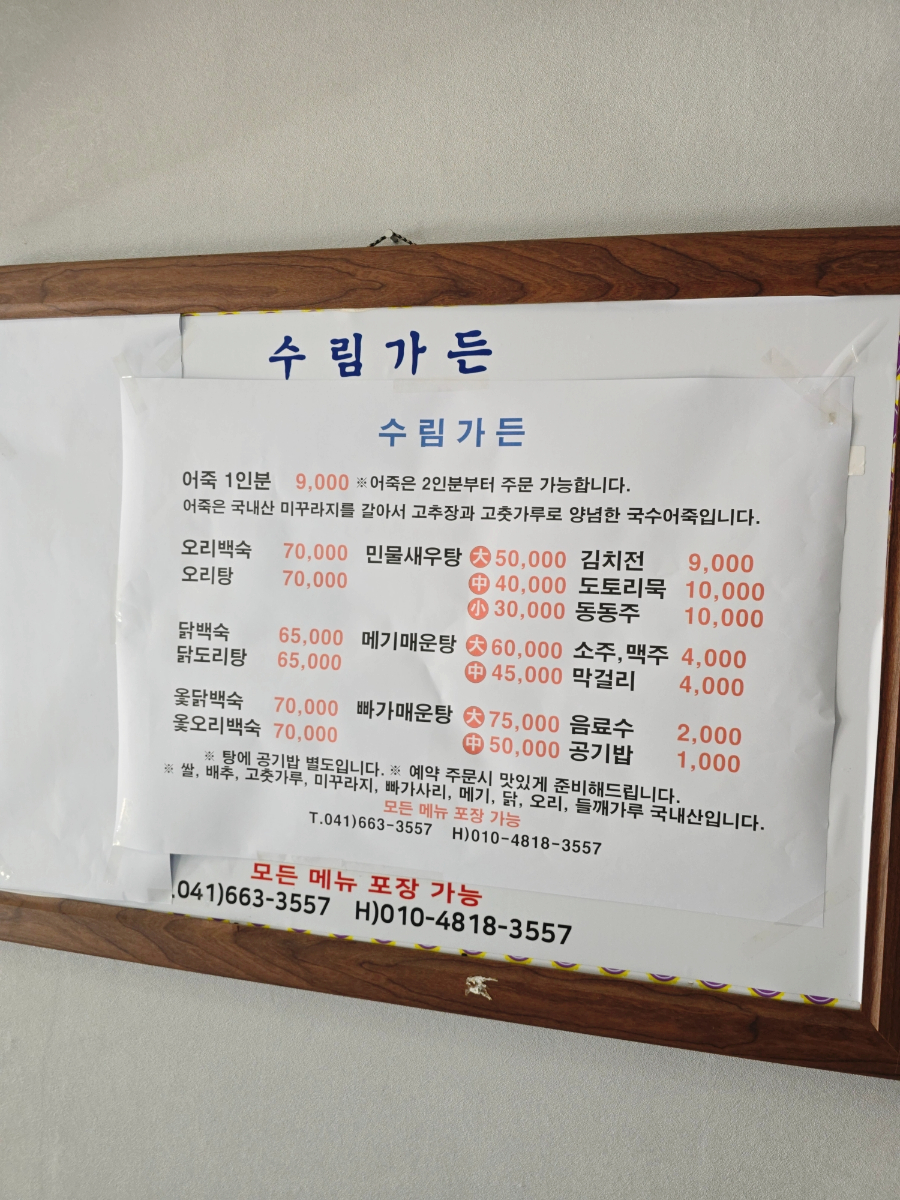 수림가든
수림가든
어죽 1인분 9,000 ※어죽은 2인분부터 주문 가능합니다.
어죽은 국내산 미꾸라지를 갈아서 고추장과 고춧가루로 양념한 국수어죽입니다.
오리백숙 70,000 민물새우탕 大 50,000 김치전 9,000
오리탕 70,000 中 40,000 도토리묵 10,000
小 30,000 동동주 10,000
닭백숙 65,000 메기매운탕 大 60,000 소주,맥주 4,000
닭도리탕 65,000 中 45,000 막걸리 4,000
옻닭백숙 70,000 빠가매운탕 大 75,000 음료수 2,000
옻오리백숙 70,000 中 50,000 공기밥 1,000
※ 탕에 공기밥 별도입니다. ※ 예약 주문시 맛있게 준비해드립니다.
※ 쌀, 배추, 고춧가루, 미꾸라지, 빠가사리, 메기, 닭, 오리, 들깨가루 국내산입니다.
모든 메뉴 포장 가능
T.041)663-3557 H)010-4818-3557
모든 메뉴 포장 가능
.041)663-3557 H)010-4818-3557